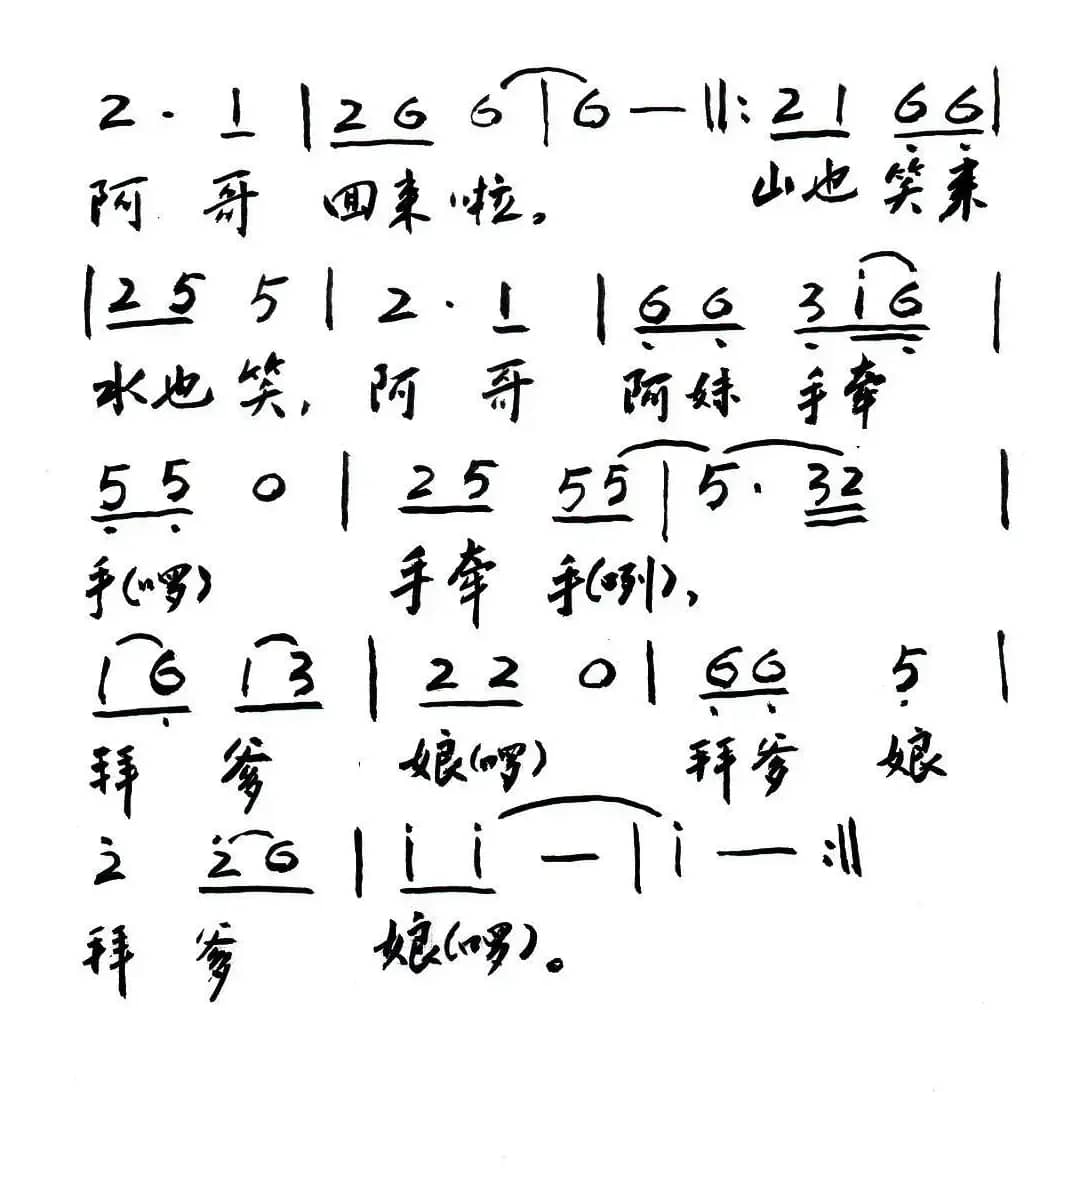 2 · 1 | 2 6 6 | 6 — ‖: 2 1 6 6 |
阿 哥 回来啦, 山也 笑来
| 2 5 5 | 2 · 1 | 6 6 3 i 6 |
水也 笑, 阿 哥 阿妹 手牵
5 5 0 | 2 5 5 5 | 5 · 3 2 |
手(啰) 手牵 手(咧),
1 6 1 3 | 2 2 0 | 6 6 5 |
拜 爹 娘(啰) 拜爹 娘
2 2 6 | i i — | i — :‖
拜 爹 娘(啰)。